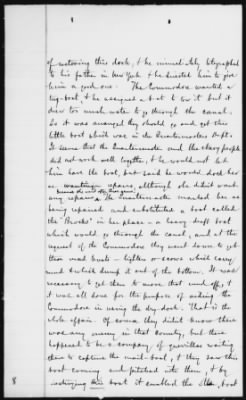 of restoring this dock, & he immediately telegraphed
to his father in New York & he directed him to give
him a good one. The Commodore wanted a
tug-boat, & he assigned a boat to tow it but it
drew too much water to go through the canal.
So it was arranged they should go and get this
little boat which was in the Quartermasters Dept.
It seems that the Quartermaster and the navy people
did not work well together, & he would not let
him have the boat, but said he would dock her
as wanting repairs, although she didn't want
any repairs & the Quartermaster marked her as
being repaired and substituted a boat called
the "Brooks" in her place - a heavy draft boat
which would go through the canal, and at the
request of the Commodore they went down to get
their mud boats - lighters or scows which carry
mud & which dump it out of the bottom. It was
necessary to get them to move that mud off, &
it was all done for the purpose of aiding the
Commodore in using the dry-dock. That is the
whole affair. Of course they didn't know there
was any enemy in that country, but there
happened to be a company of guerrillas waiting
there to capture the mail-boat, & they saw this
boat coming and pitched into them, & by
destroying this boat it enabled the boat
8